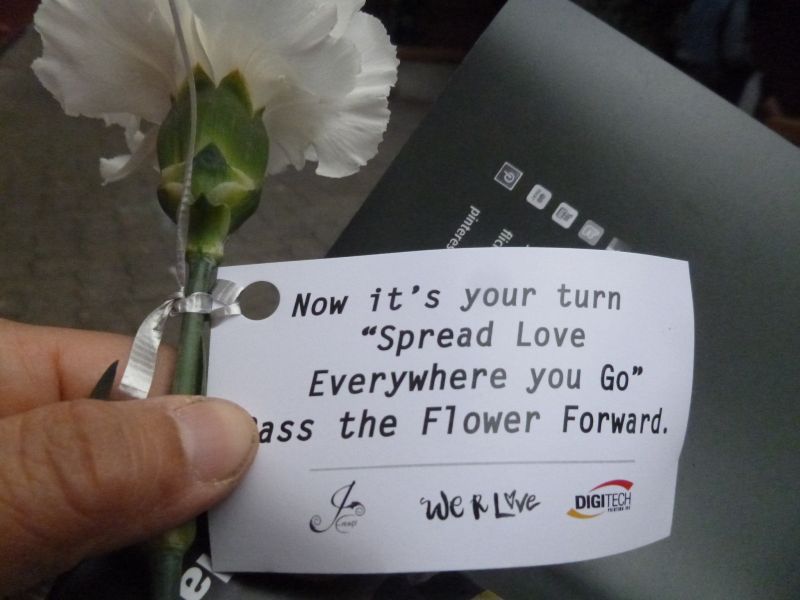 Now it's your turn
"Spread Love
Everywhere you Go"
Pass the Flower Forward.
We R Love
DIGITECH